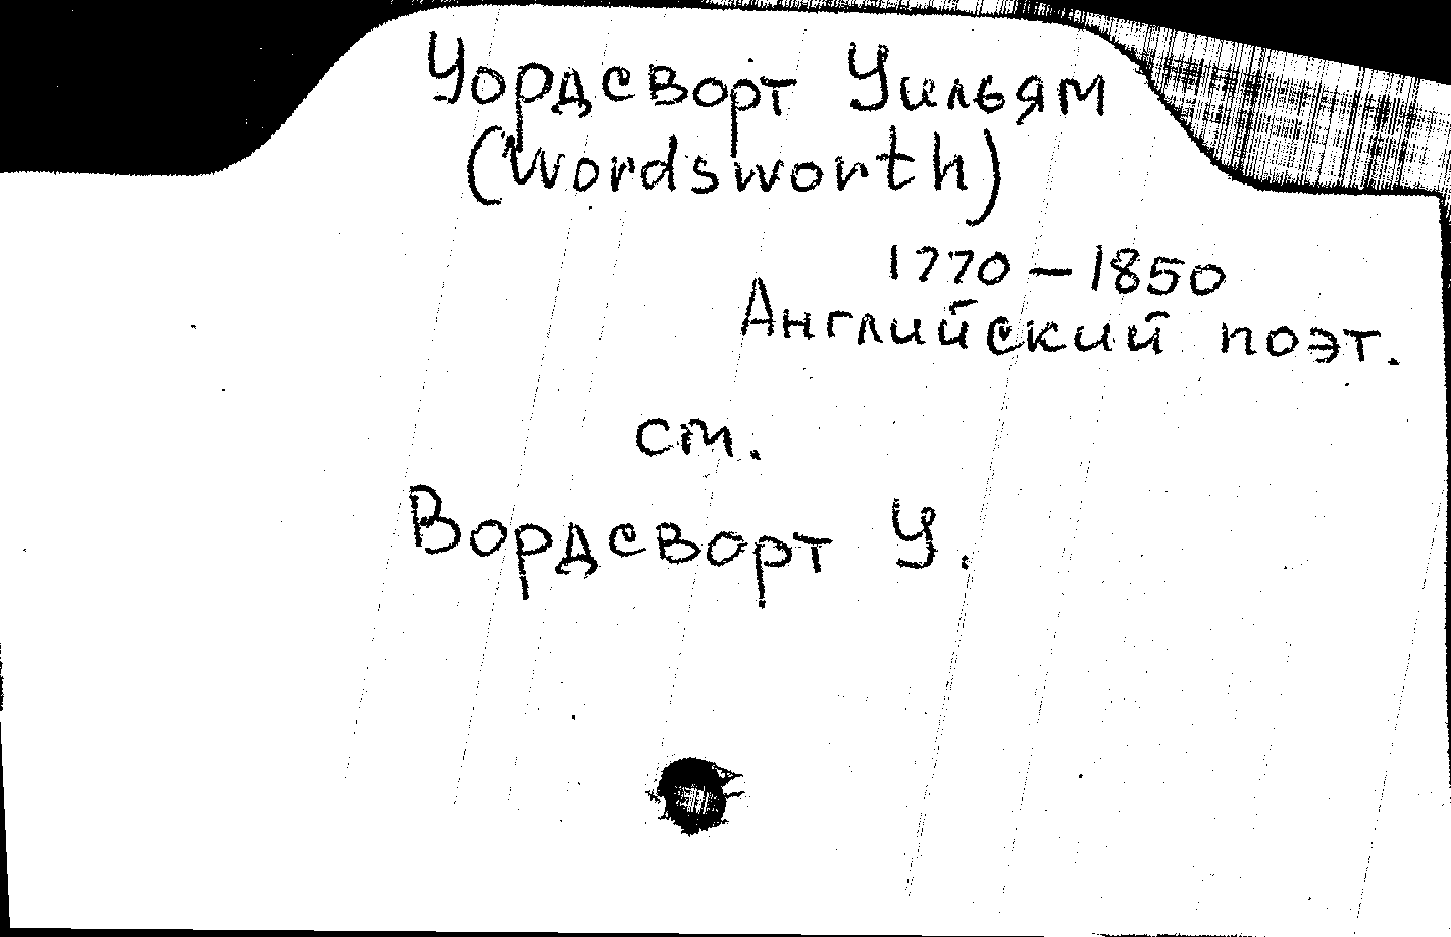 Уордсворт Уильям
(Wordsworth)
1770 – 1850
Английский поэт.
см.
Вордсворт У.